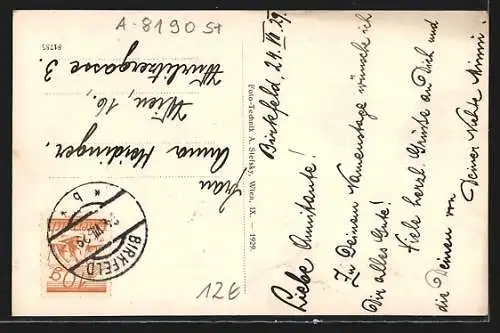 Birkfeld, 24. VII. 29.
Liebe Annitante!
Zu Deinem Namenstage wünsche ich
Dir alles Gute!
Viele herzl. Grüße an Dich und
die Deinen von Deiner Nichte Minni.
Frau
Anna Heidinger.
Wien, 16.,
Wurlitzergasse 3.
Foto-Technik A. Stefsky, Wien, IX. — 1929.
91785
BIRKFELD
* b *
60
A-8190 St
12€